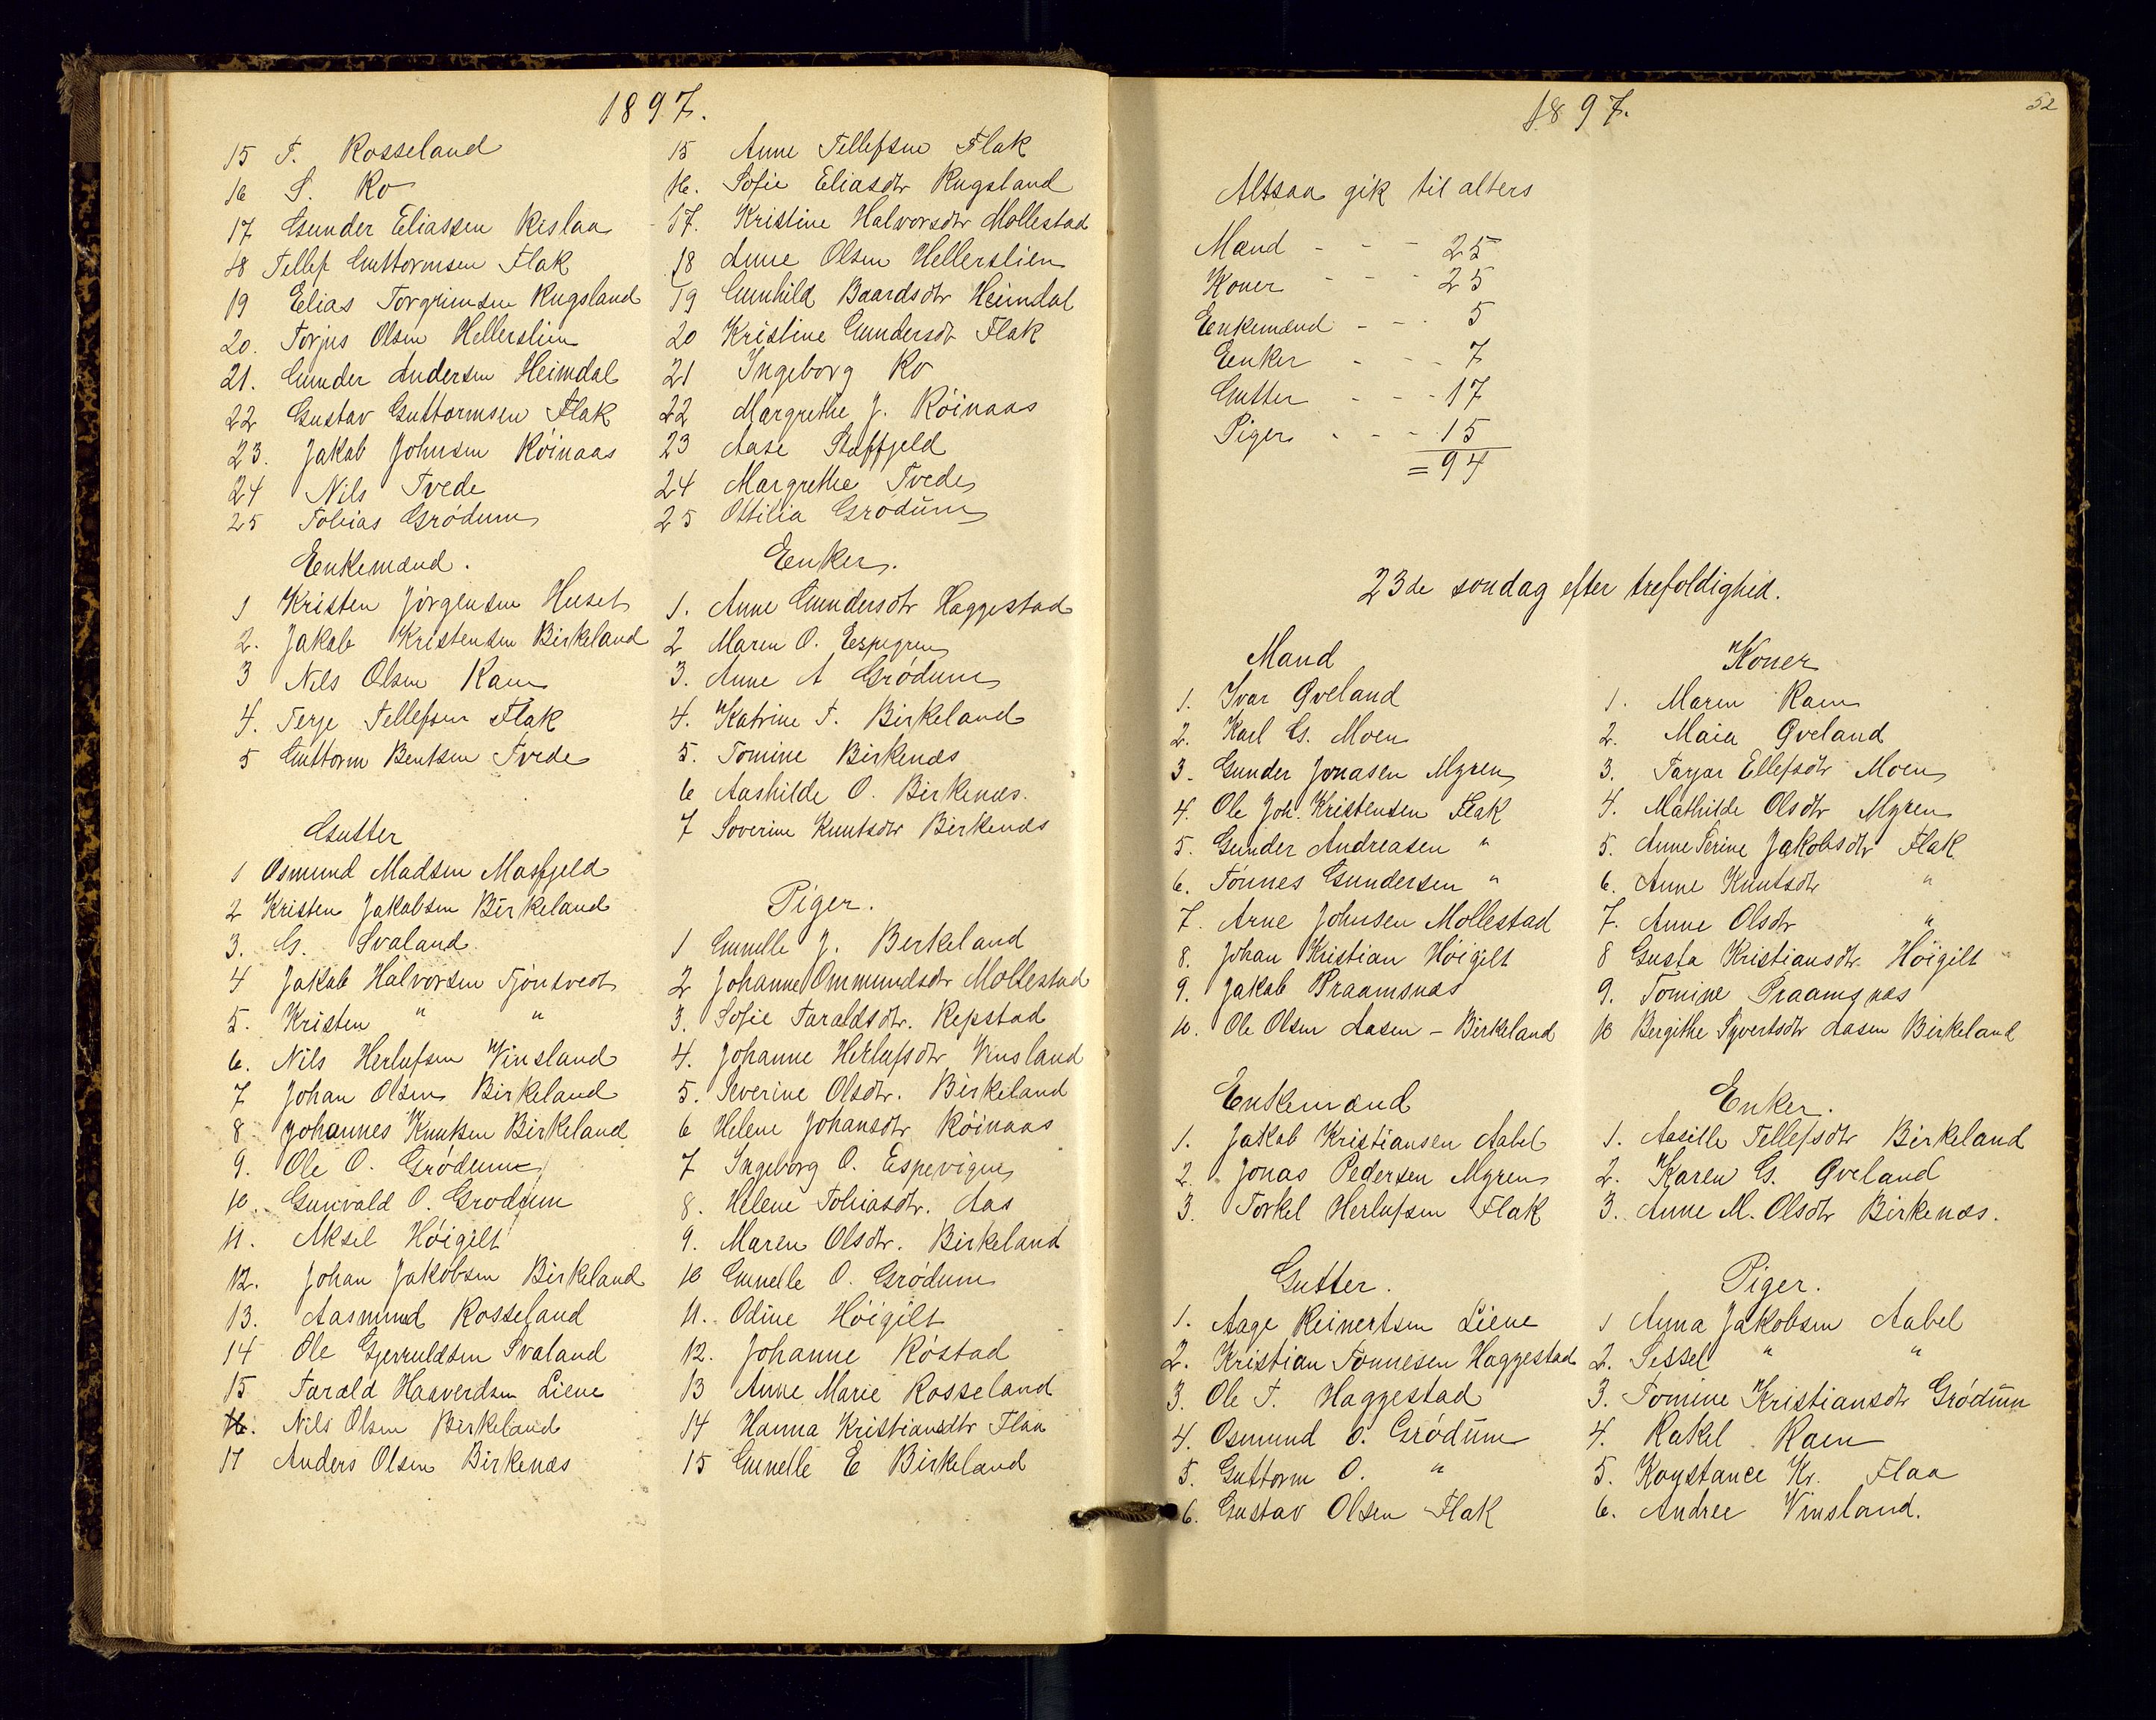 1897.
15 T. Rosseland
16 S. Ro
17 Gunder Eliassen Rislaa
18 Tellef Guttormsen Flak
19 Elias Torgrimsen Rugsland
20. Torjus Olsen Hellerslien
21. Gunder Andersen Heimdal
22 Gustav Guttormsen Flak
23. Jakob Johnsen Röinaas
24 Nils Tvede
25 Tobias Grödum
Enkemænd.
1 Kristen Jörgensen Huset
2. Jakob Kristensen Birkeland
3 Nils Olsen Raen
4. Terje Tellefsen Flak
5 Guttorm Bentsen Tvede
Gutter
1 Osmund Madsen Masfjeld
2 Kristen Jakobsen Birkeland
3. G. Svaland
4 Jakob Halvorsen Tjöntvedt
5. Kristen " "
6. Nils Herlufsen Vinsland
7 Johan Olsen Birkeland
8 Johannes Knutsen Birkeland
9. Ole O. Grödum
10. Gunvald O. Grodum
11. Aksel Höigilt
12. Johan Jakobsen Birkeland
13. Aasmund Rosseland
14 Ole Gjerruldsen Svaland
15 Tarald Haaverdsen Liene
16. Nils Olsen Birkeland
17 Anders Olsen Birkenæs
15 Anne Tellefsen Flak
16. Sofie Eliasdtr Rugsland
17. Kristine Halvorsdtr Mollestad
18 Anne Olsen Hellerslien
19 Gunhild Baardsdtr Heimdal
20 Kristine Gundersdt Flak
21 Ingeborg Ro
22 Margrethe J. Röinaas
23 Aase Støffjeld
24 Margrethe Tvede
25 Ottilia Grödum
Enker.
1. Anne Gundersdtr Haggestad
2 Maren O. Espegren
3. Anne A Grödum
4. Katrine T. Birkeland
5. Tomine Birkenæs
6 Aashilde O. Birkenæs.
7 Soverine Knutsdtr Birkenæs
Piger.
1 Gunelle J. Berkeland
2 Johanne Ommundsdtr Mollestad
3. Sofie Taraldsdtr. Repstad
4. Johanne Herlufsdtr Vinsland
5. Severine Olsdtr. Birkeland
6 Helene Johansdtr Röinaas
7 Ingeborg O. Espevigen
8. Helene Tobiasdtr. Aas
9. Maren Olsdtr. Birkeland
10 Gunelle O. Grödum
11. Odine Höigilt
12. Johanne Röstad
13 Anne Marie Rosseland
14 Hanna Kristiansdtr Flaa
15 Gunelle E Birkeland
1897.
52
Altsaa gik til alters
Mænd - - - 25
Koner - - - 25
Enkemænd - - - 5
Enker - - - 7
Gutter - - - 17
Piger - - - 15
= 94
23de sondag efter trefoldighed.
Mænd
1. Ivar Qveland
2. Karl G. Moen
3. Gunder Jonasen Myren
4. Ole Joh. Kristensen Flak
5. Gunder Andreasen "
6. Tönnes Gundersen "
7. Arne Johnsen Mollestad
8. Johan Kristian Höigilt
9. Jakob Praamsnæs
10. Ole Olsen Aasen - Birkeland
Koner
1. Maren Raen
2. Maia Qveland
3. Tarjar Ellefsdtr Moen
4. Mathilde Olsdtr Myren
5. Anne Serine Jakobsdtr Flak
6. Anne Knutsdtr "
7. Anne Olsdtr "
8 Gusta Kristiansdtr. Höigilt
9. Tomine Praamsnæs
10 Bergithe Syvertsdtr Aasen Birkeland
Enkemænd
1. Jakob Kristiansen Aabel
2. Jonas Pedersen Myren
3. Torkel Herlufsen Flak
Enker.
1. Aasille Tellefsdtr Birkeland
2. Karen G. Qveland
3. Anne M. Olsdtr Birkenæs.
Gutter.
1. Aage Reinertsen Liene
2. Kristian Tonnesen Haggestad
3. Ole T. Haggestad
4. Osmund O. Grödum
5. Guttorm O. "
6. Gustav Olsen Flak
Piger.
1 Anna Jakobsen Aabel
2. Sessel " "
3. Tomine Kristiansdtr Grödum
4. Rakel Raen
5. Konstance Kr. Flaa
6. Andree Vinsland.